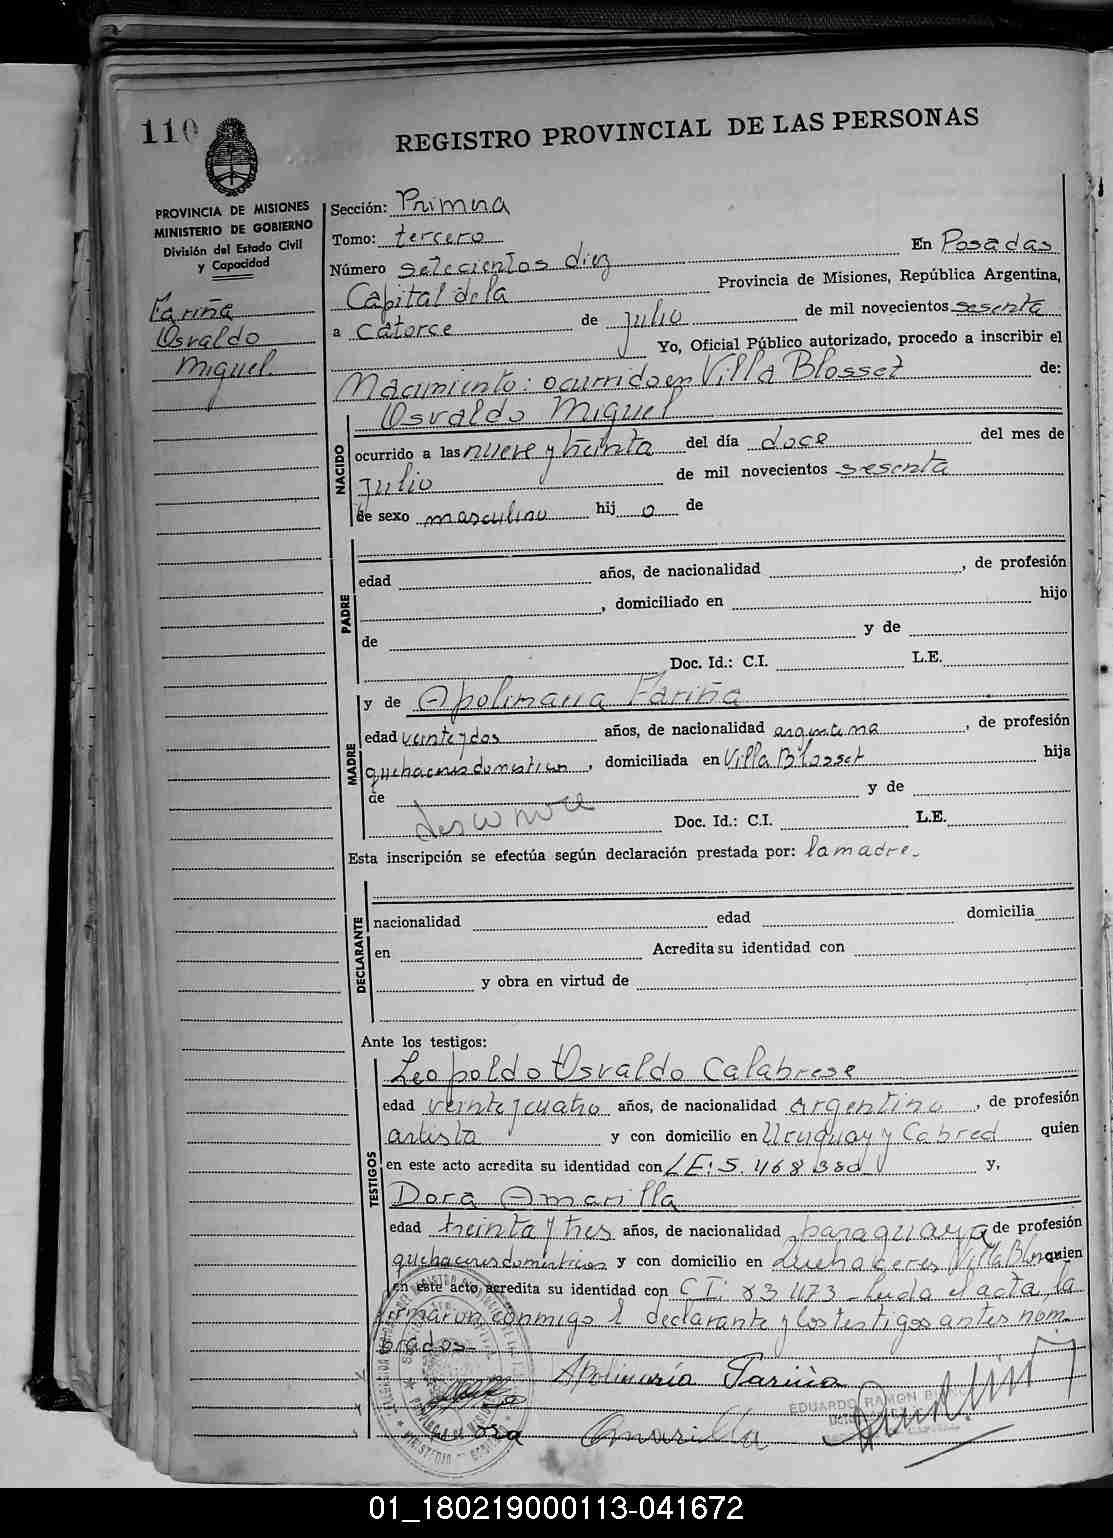 110
REGISTRO PROVINCIAL DE LAS PERSONAS
PROVINCIA DE MISIONES
MINISTERIO DE GOBIERNO
División del Estado Civil
y Capacidad
Fariña
Osvaldo
Miguel.
Sección: Primera
Tomo: tercero
En Posadas
Número setecientos diez
Capital de la Provincia de Misiones, República Argentina,
a catorce de Julio de mil novecientos sesenta
Yo, Oficial Público autorizado, procedo a inscribir el
Nacimiento: ocurrido en Villa Blosset de:
Osvaldo Miguel
NACIDO
ocurrido a las nueve y treinta del día doce del mes de
Julio de mil novecientos sesenta
de sexo masculino hij o de
PADRE
edad años, de nacionalidad , de profesión
, domiciliado en hijo
de y de
Doc. Id.: C.I. L.E.
MADRE
y de Apolinaria Fariña
edad veinte y dos años, de nacionalidad argentina , de profesión
quehaceres domesticos , domiciliada en Villa Blosset hija
de y de
desconoce Doc. Id.: C.I. L.E.
Esta inscripción se efectúa según declaración prestada por: la madre.
DECLARANTE
nacionalidad edad domicilia
en Acredita su identidad con
y obra en virtud de
Ante los testigos:
TESTIGOS
Leopoldo Osvaldo Calabrese
edad veinte y cuatro años, de nacionalidad Argentino , de profesión
artista y con domicilio en Uruguay y Cabred quien
en este acto acredita su identidad con LE: 5.468380 y,
Dora Amarilla
edad treinta y tres años, de nacionalidad paraguaya de profesión
quehaceres domesticos y con domicilio en quehaceres Villa Blosset quien
en este acto acredita su identidad con CI: 83473 Leida el acta, la
firmaron conmigo el declarante y los testigos antes nom
brados.
Apolinaria Fariña
EDUARDO RAMON
Amarilla
01_180219000113-041672